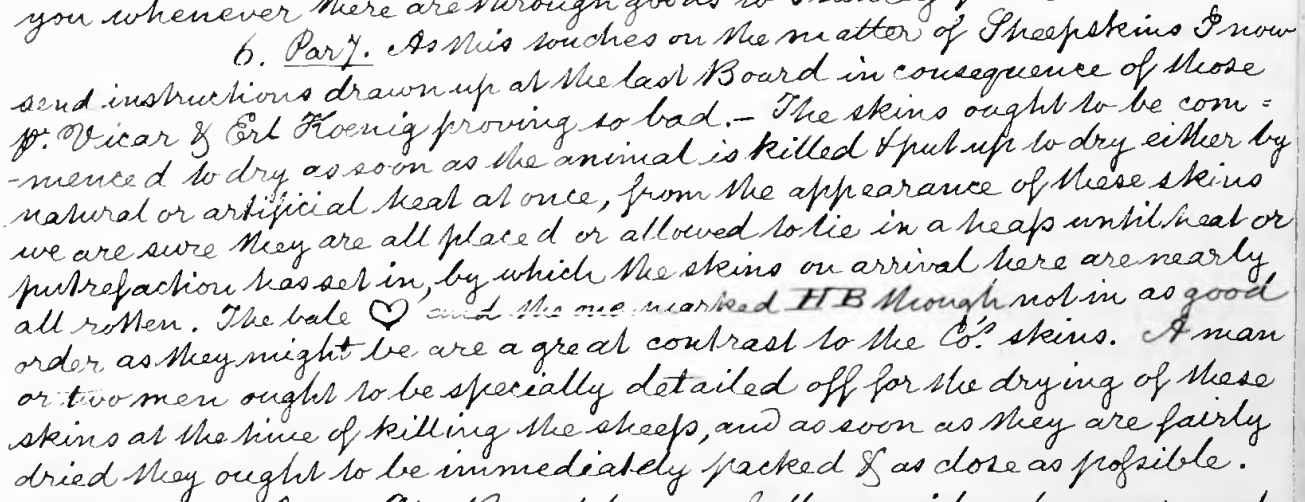 you whenever there are through goods to
6. Par 7. As this touches on the matter of Sheepskins I now
send instructions drawn up at the last Board in consequence of those
p. Vicar & Erl Koenig proving so bad. – The skins ought to be com=
-menced to dry as soon as the animal is killed & put up to dry either by
natural or artificial heat at once, from the appearance of these skins
we are sure they are all placed or allowed to lie in a heap until heat or
putrefaction has set in, by which the skins on arrival here are nearly
all rotten. The bale ♡ and the one marked HB though not in as good
order as they might be are a great contrast to the Co's. skins. A man
or two men ought to be specially detailed off for the drying of these
skins at the time of killing the sheep, and as soon as they are fairly
dried they ought to be immediately packed & as close as possible.